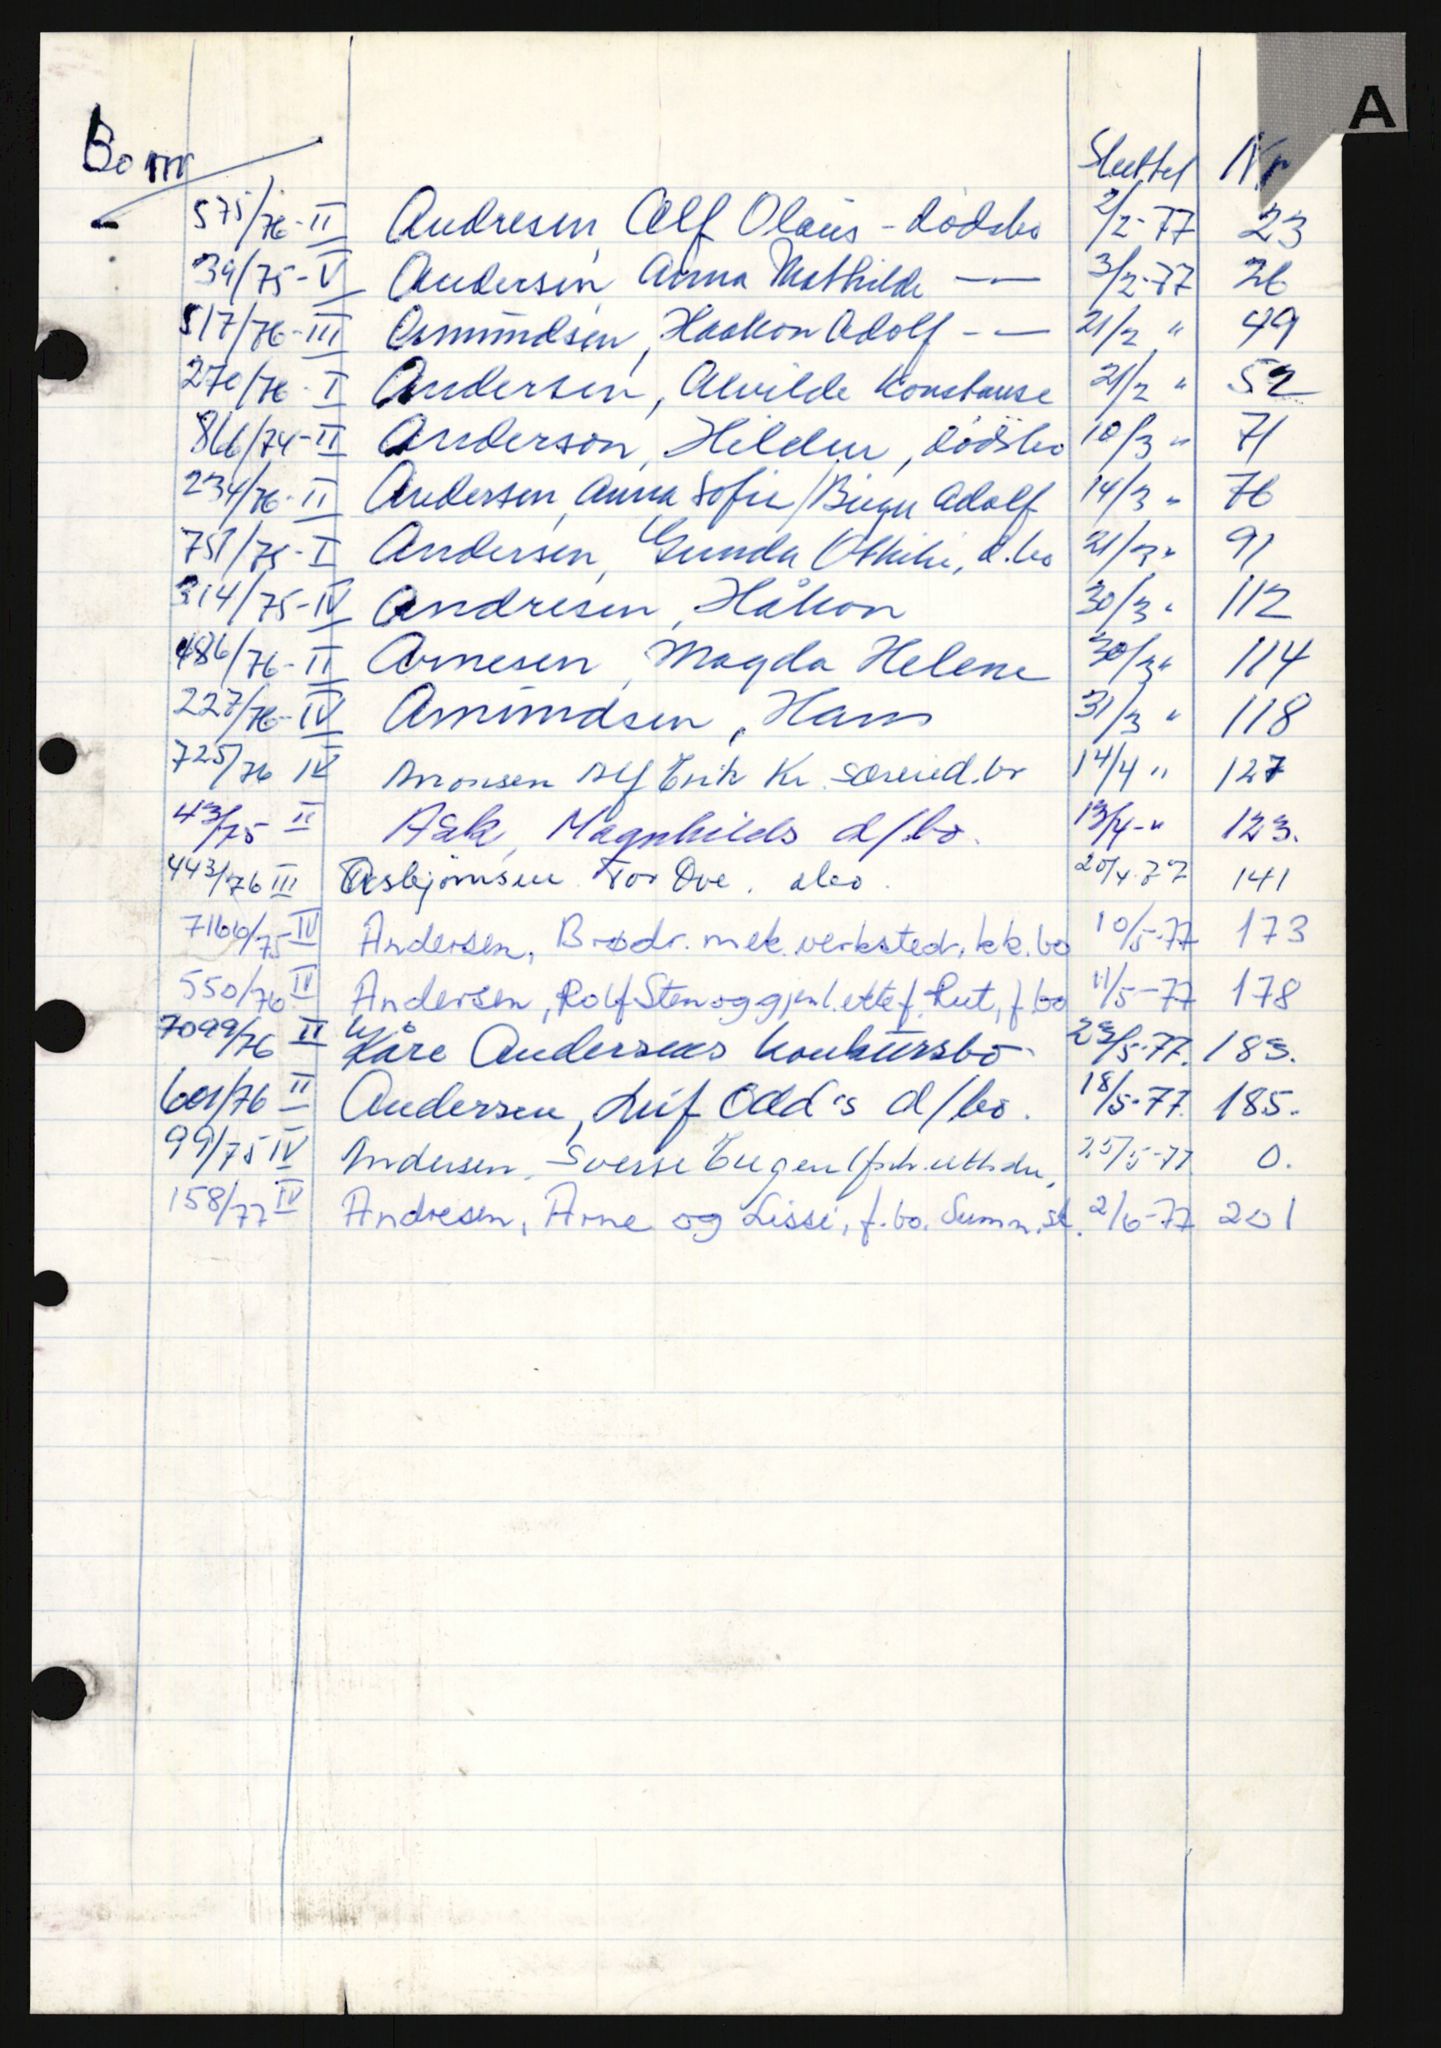 A
Bo nr Sluttet Nr
575/76-II Andresen, Alf Olaus - dødsbo 2/2-77 23
39/75-V Andersen, Anna Mathilde — 3/2-77 26
517/76-III Asmundsen, Haakon Adolf - — 21/2 " 49
270/76-I Andersen, Alvilde Konstanse 21/2 " 52
866/74-II Anderson, , dødsbo 10/3 " 71
234/76-II Andersen, Anna Sofie/Birger Adolf 14/3 " 76
751/75-I Andersen, Gunda Othilie, d.bo 21/3 " 91
314/75-IV Andresen, Håkon 30/3 " 112
486/76-II Arnesen, Magda Helene 30/3 " 114
227/76-IV Amundsen, Hans 31/3 " 118
725/76 IV Aronsen Alf Erik Kr. d.bo 14/4 " 127
43/75 II Ask, Magnhilds d/bo. 13/4-" 123.
443/76 III Asbjørnsen Tor Ove. dbo. 20/4-77 141
7166/75-IV Andersen, Brødr. mek.verksted, kk.bo 10/5-77 173
550/76 IV Andersen, Rolf Sten og gjenl. ektef. Rut, f.bo 11/5-77 178
7099/76 II Kåre Andersens konkursbo 23/5-77. 183.
601/76 II Andersen, Leif Odd's d/bo. 18/5-77. 185.
99/75 IV Andersen, Sverre Eugen 25/5-77 0.
158/77 IV Andresen, Arne og Lissi, f.bo. Summ.sk. 2/6-77 201